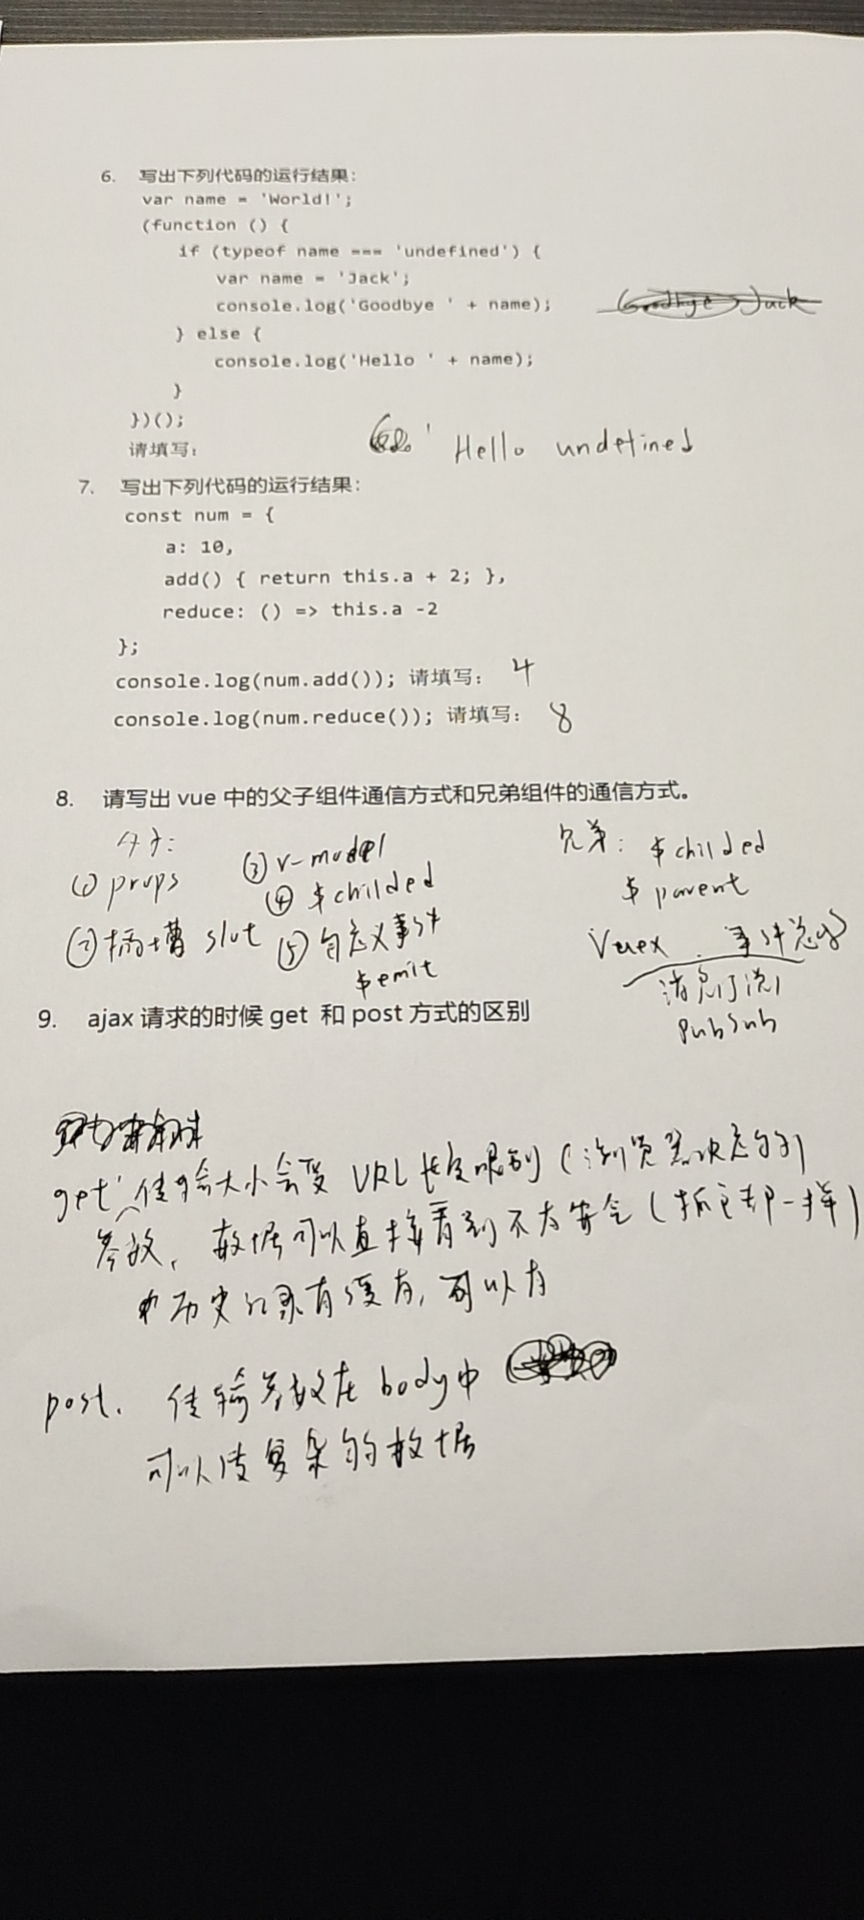 6. 写出下列代码的运行结果：
var name = 'World!';
(function () {
if (typeof name === 'undefined') {
var name = 'Jack';
console.log('Goodbye ' + name);
Goodbye Jack
} else {
console.log('Hello ' + name);
}
})();
请填写：
Hello undefined
7. 写出下列代码的运行结果：
const num = {
a: 10,
add() { return this.a + 2; },
reduce: () => this.a -2
};
console.log(num.add()); 请填写： 4
console.log(num.reduce()); 请填写： 8
8. 请写出 vue 中的父子组件通信方式和兄弟组件的通信方式。
父子：
① props
② 插槽 slot
③ v-model
④ $childed
⑤ 自定义事件
$emit
兄弟： $childed
$ parent
Vuex 事件总线
消息订阅
PubSub
9. ajax 请求的时候 get 和 post 方式的区别
get 传输大小会受 URL 长度限制 (浏览器决定的)
参数, 数据可以直接看到不太安全 (抓包都一样)
历史记录有缓存, 可以存
post. 传输参数在 body中
可以传复杂的数据